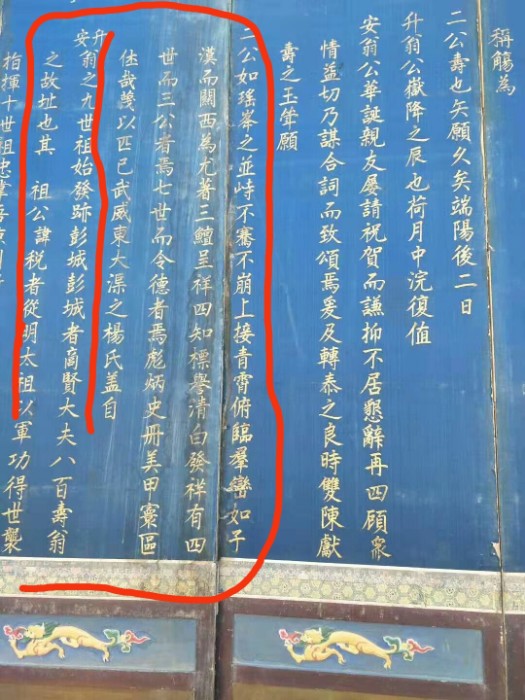 稱觴為
二公壽也矣願久矣端陽後二日
升翁公嶽降之辰也荷月中浣復值
安翁公華誕親友屢請祝賀而謙抑不居懇辭再四顧衆
情益切乃謀合詞而致頌焉爰及轉泰之良時雙陳獻
壽之玉斚願
二公如瑤峯之並峙不騫不崩上接青霄俯臨羣巒如子
漠而關西為尤著三鱣呈祥四知標譽清白發祥有四
世而三公者焉七世而令德者焉彪炳史冊美甲寰區
佳哉幾以匹已武威東大渠之楊氏蓋自
升
安翁之九世祖始發跡彭城彭城者商賢大夫八百壽翁
之故址也其 祖公諱税者從明太祖以軍功得世襲
指揮十世祖忠